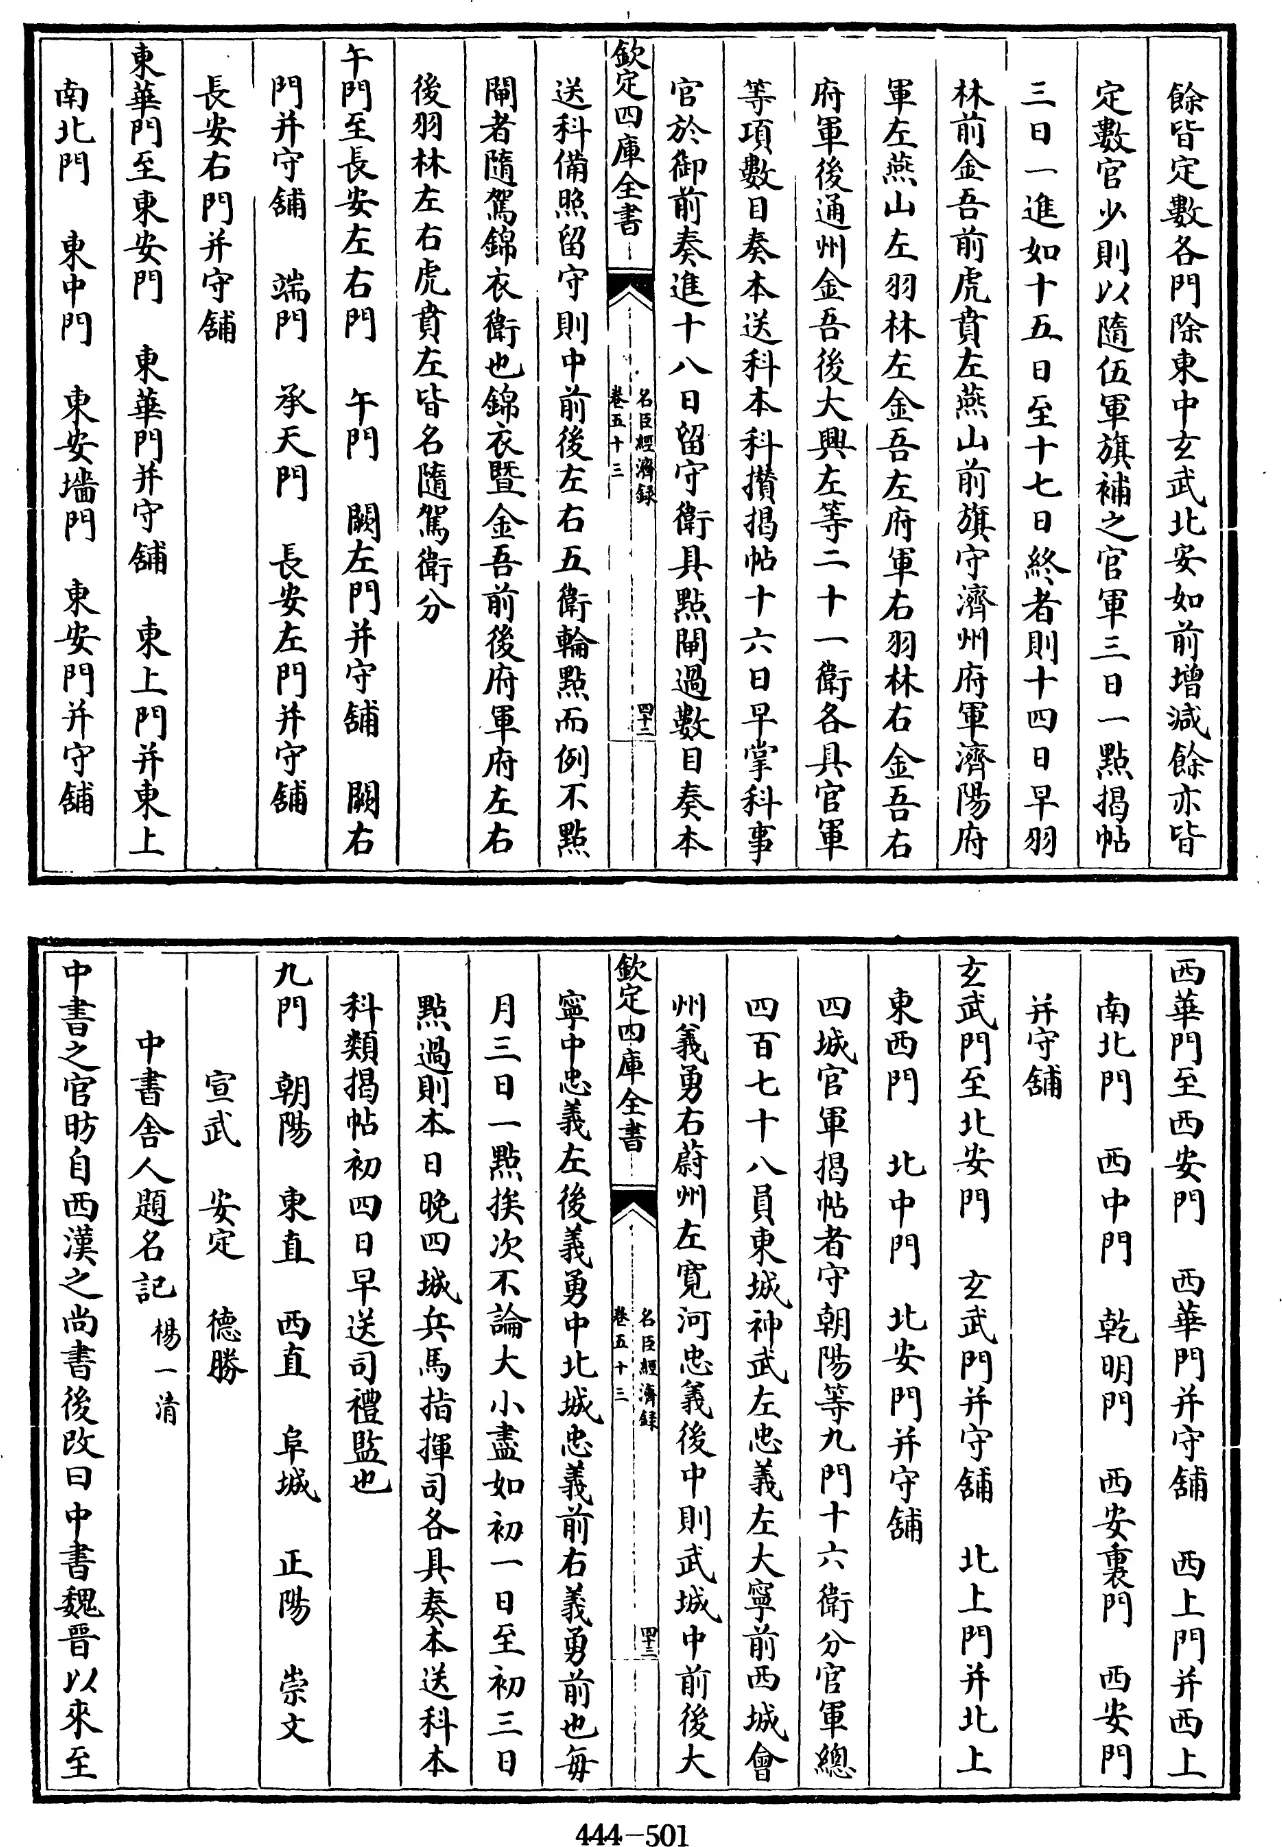 餘皆定數各門除東中玄武北安如前增減餘亦皆
定數官少則以隨伍軍旗補之官軍三日一點揭帖
三日一進如十五日至十七日終者則十四日早羽
林前金吾前虎賁左燕山前旗守濟州府軍濟陽府
軍左燕山左羽林左金吾左府軍右羽林右金吾右
府軍後通州金吾後大興左等二十一衛各具官軍
等項數目奏本送科本科攢揭帖十六日早掌科事
官於御前奏進十八日留守衛具點閘過數目奏本
欽定四庫全書
名臣經濟録
卷五十三
四十二
送科備照留守則中前後左右五衛輪點而例不點
閘者隨駕錦衣衛也錦衣暨金吾前後府軍府左右
後羽林左右虎賁左皆名隨駕衛分
午門至長安左右門 午門 闕左門并守舖 闕右
門并守舖 端門 承天門 長安左門并守舖
長安右門并守舖
東華門至東安門 東華門并守舖 東上門并東上
南北門 東中門 東安墻門 東安門并守舖
西華門至西安門 西華門并守舖 西上門并西上
南北門 西中門 乾明門 西安裏門 西安門
并守舖
玄武門至北安門 玄武門并守舖 北上門并北上
東西門 北中門 北安門并守舖
四城官軍揭帖者守朝陽等九門十六衛分官軍總
四百七十八員東城神武左忠義左大寧前西城會
州義勇右蔚州左寛河忠義後中則武城中前後大
欽定四庫全書
名臣經濟録
卷五十三
四十三
寧中忠義左後義勇中北城忠義前右義勇前也每
月三日一點挨次不論大小盡如初一日至初三日
點過則本日晚四城兵馬指揮司各具奏本送科本
科類揭帖初四日早送司禮監也
九門 朝陽 東直 西直 阜城 正陽 崇文
宣武 安定 德勝
中書舍人題名記 楊一清
中書之官昉自西漢之尚書後改曰中書魏晉以來至
444-501